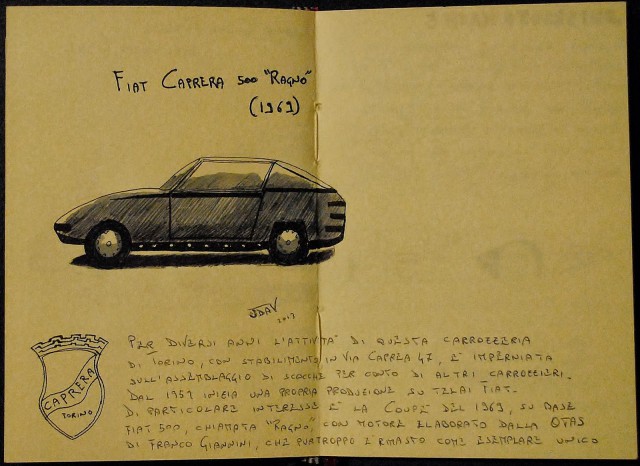 FIAT CAPRERA 500 "RAGNO"
(1969)
JDAV
2013
CAPRERA
TORINO
PER DIVERSI ANNI L'ATTIVITA' DI QUESTA CARROZZERIA
DI TORINO, CON STABILIMENTO IN VIA CAPREA 47, E' IMPERNIATA
SULL'ASSEMBLAGGIO DI SCOCCHE PER CONTO DI ALTRI CARROZZIERI.
DAL 1959 INIZIA UNA PROPRIA PRODUZIONE SU TELAI FIAT.
DI PARTICOLARE INTERESSE E' LA COUPE' DEL 1969, SU BASE
FIAT 500, CHIAMATA "RAGNO", CON MOTORE ELABORATO DALLA OTAS
DI FRANCO GIANNINI, CHE PURTROPPO E' RIMASTO COME ESEMPLARE UNICO